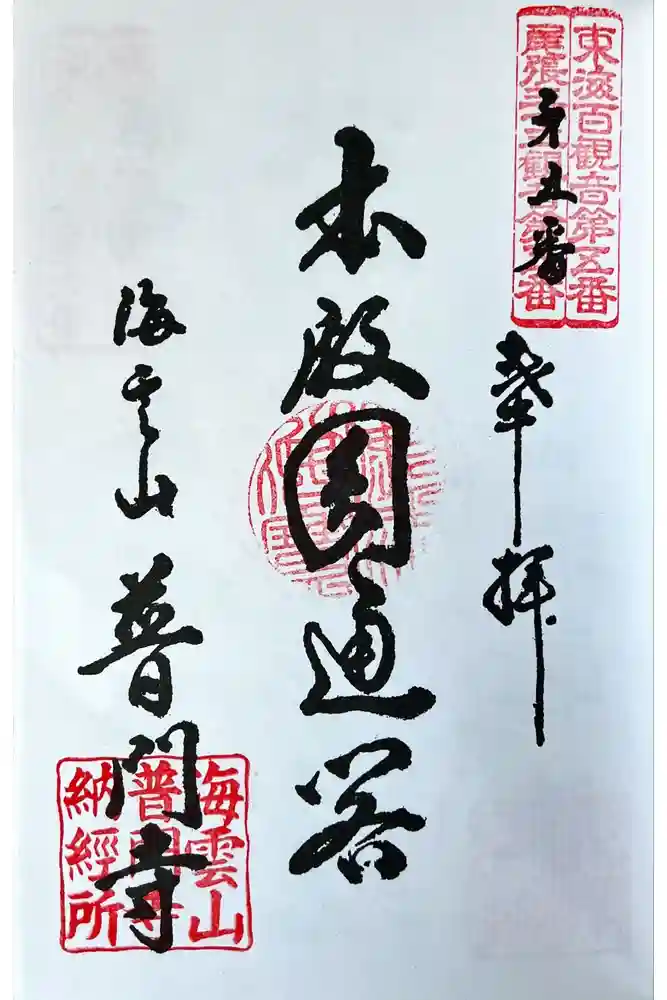 東海百観音第五番
尾張三十三観音第五番
第五番
奉拝
本殿圓通閣
海雲山 普門寺
海雲山
普門寺
納經所